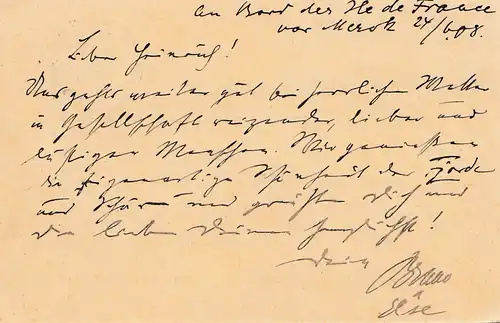 An Bord der Ile de France
vor Merok 24/6.08.
Lieber Heinrich!
Uns geht's weiter gut bei herrlichem Wetter
in Gesellschaft reizender, lieber und
lustiger Menschen. Wir genießen
die eigenartige Schönheit der Fjorde
und Schären und grüßen Dich und
die lieben Deinen herzlichst!
Dein Bruno
Else